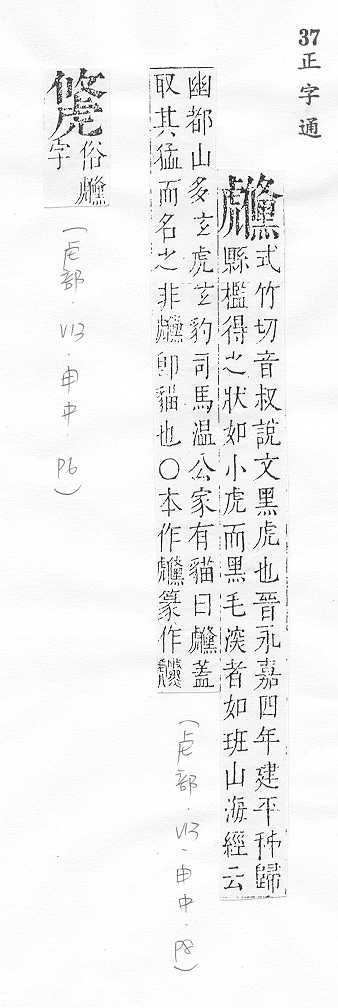 37正字通
虪式竹切音叔說文黑虎也晉永嘉四年建平秭歸
縣檻得之狀如小虎而黑毛深者如班山海經云
幽都山多玄虎玄豹司馬温公家有貓曰虪蓋
取其猛而名之非虪卽貓也〇本作虪篆作
(虍部·V13·申中·P8)
俗虪
字
(虍部·V13·申中·P6)